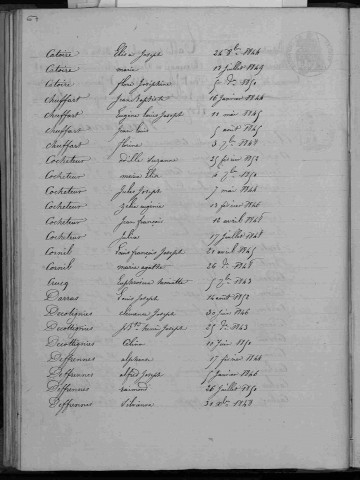 Catoire Elisa Joseph 26 8bre 1844
Catoire marie 12 juillet 1849
Catoire flore Joséphine 1850
Chuffart Jean Baptiste 16 janvier 1844
Chuffart Eugène Louis Joseph 11 mai 1845
Chuffart Jean Louis 5 août 1845
Chuffart florine 3 7bre 1848
Cocheteux Suzanne 25 février 1852
Cocheteux maria 1850
Cocheteux Jules Joseph 7 mai 1844
Cocheteux Zélie 12 février 1846
Cocheteux Jean françois 12 avril 1848
Cocheteux Julia 17 juillet 1848
Cornil Louis françois Joseph 21 avril 1845
Cornil marie agathe 26 1848
Cucq Euphrosine 5 1843
Darras Louis Joseph 14 août 1852
Decottignies Joseph 30 Juin 1846
Decottignies Louis Joseph 25 1843
Decottignies 11 Juin 1850
Deffrennes alphonse 17 février 1844
Deffrennes alfred Joseph 5 Janvier 1846
Deffrennes raimond 26 Juillet 1850
Deffrennes 30 1848